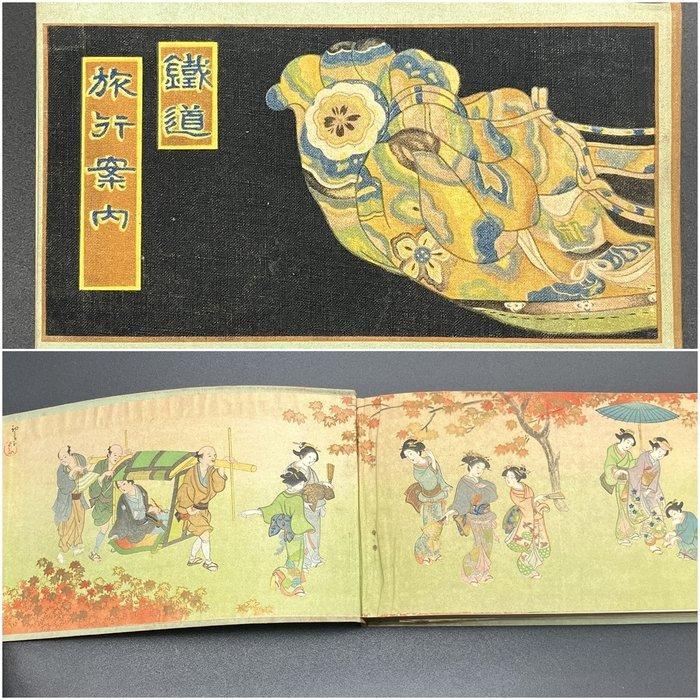 鐵道
旅行案内